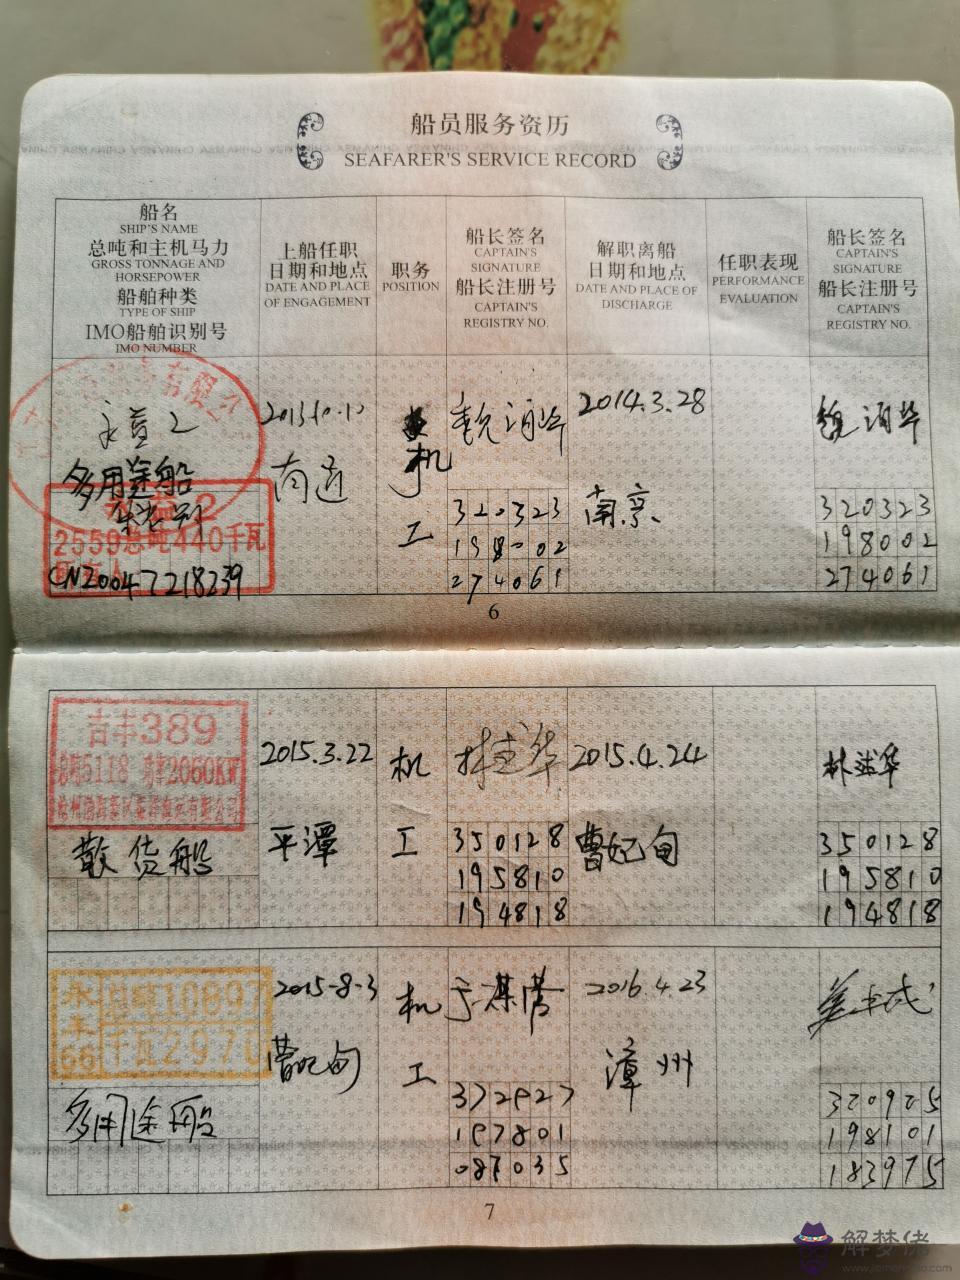 船员服务资历
SEAFARER'S SERVICE RECORD
船名
SHIP'S NAME
总吨和主机马力
GROSS TONNAGE AND
HORSEPOWER
船舶种类
TYPE OF SHIP
IMO船舶识别号
IMO NUMBER
上船任职
日期和地点
DATE AND PLACE
OF ENGAGEMENT
职务
POSITION
船长签名
CAPTAIN'S
SIGNATURE
船长注册号
CAPTAIN'S
REGISTRY NO.
解职离船
日期和地点
DATE AND PLACE OF
DISCHARGE
任职表现
PERFORMANCE
EVALUATION
船长签名
CAPTAIN'S
SIGNATURE
船长注册号
CAPTAIN'S
REGISTRY NO.
多用途船
2559总吨440千瓦
CN20047218239
机
工
320323
198002
274061
2014.3.28
南京
320323
198002
274061
6
吉丰389
总吨5118 功率2060KW
散货船
2015.3.22
平潭
机
工
350128
195810
194818
2015.4.24
曹妃甸
350128
195810
194818
永丰66
总吨10897
千瓦2970
多用途船
2015-8-3
曹妃甸
机
工
2016.4.23
漳州
087035
198101
183975
7
解梦佬